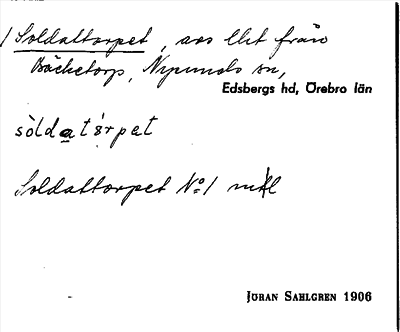 / Soldattorpet, avs litet från
Bäcketorp, Nysunds sn,
Edsbergs hd, Örebro län
sòldat`ɵrpet
Soldattorpet No 1
JÖRAN SAHLGREN 1906